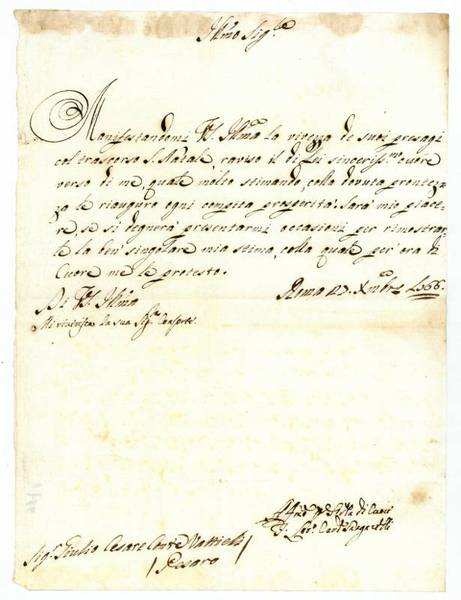 Illmo Sigre
Manifestandomi VS. Illma la vivezza de suoi presagi
col trascorso S. Natale, raviso il di Lei sincerissmo cuore
verso di me, quale molto stimando, colla dovuta prontez-
za le riauguro ogni compita prosperità. Sarà mio piace-
re, se si degnerà presentarmi occasioni per rimostrar-
le la ben singolare mia stima, colla quale per ora di
Cuore me le protesto.
Roma 27. Xmbre 1766.
Di VS. Illma
Mi riverisca la sua Sigra Consorte.
di Cuore
Sigr Giulio Cesare Conte
/ Pesaro /